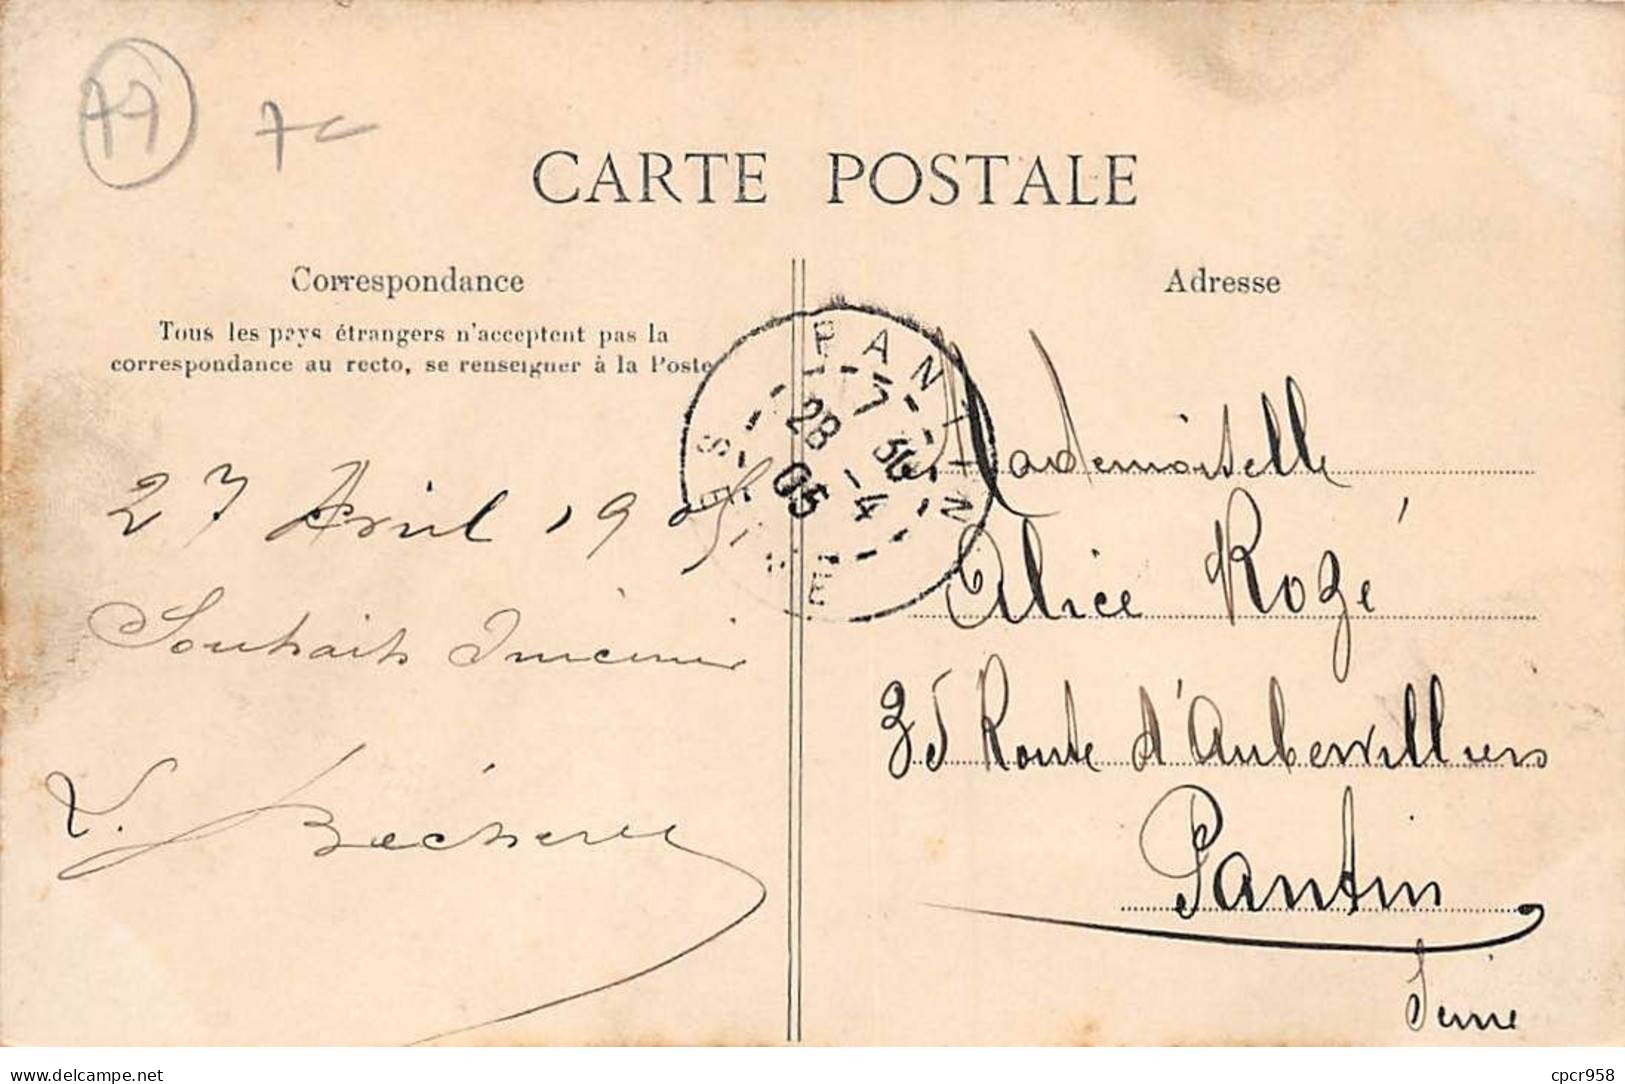 77
7c
CARTE POSTALE
Correspondance
Tous les pays étrangers n'acceptent pas la
correspondance au recto, se renseigner à la Poste
27 Avril 1905
Souhaits Sincères
Adresse
PANTIN
7 30
28 -4
05
SEINE
Mademoiselle
Alice Rozé
35 Route d'Aubervilliers
Pantin
Seine
www.delcampe.net
cpcr958